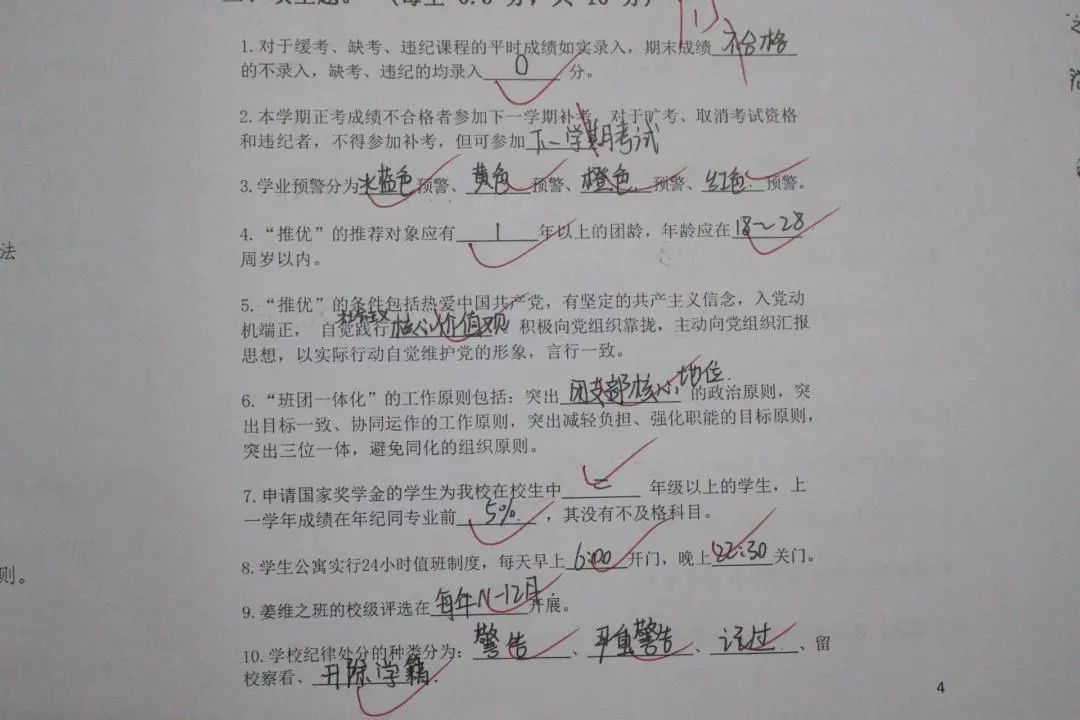 二、填空题。（每空 0.5 分，共 10 分）
1.对于缓考、缺考、违纪课程的平时成绩如实录入，期末成绩 不合格
的不录入，缺考、违纪的均录入 0 分。
2.本学期正考成绩不合格者参加下一学期补考，对于旷考、取消考试资格
和违纪者，不得参加补考，但可参加 下一学期考试
3.学业预警分为 水蓝色 预警、 黄色 预警、 橙色 预警、 红色 预警。
4.“推优”的推荐对象应有 1 年以上的团龄，年龄应在 18～28
周岁以内。
5.“推优”的条件包括热爱中国共产党，有坚定的共产主义信念，入党动
机端正， 自觉践行 社会主义核心价值观 积极向党组织靠拢，主动向党组织汇报
思想，以实际行动自觉维护党的形象，言行一致。
6.“班团一体化”的工作原则包括：突出 团支部核心地位 的政治原则，突
出目标一致、协同运作的工作原则，突出减轻负担、强化职能的目标原则，
突出三位一体，避免同化的组织原则。
7.申请国家奖学金的学生为我校在校生中 二 年级以上的学生，上
一学年成绩在年纪同专业前 5% ，其没有不及格科目。
8.学生公寓实行24小时值班制度，每天早上 6:00 开门，晚上 22:30 关门。
9.姜维之班的校级评选在 每年11-12月 开展。
10.学校纪律处分的种类分为： 警告 、 严重警告 、 记过 、留
校察看、 开除学籍 .
法
则。
4